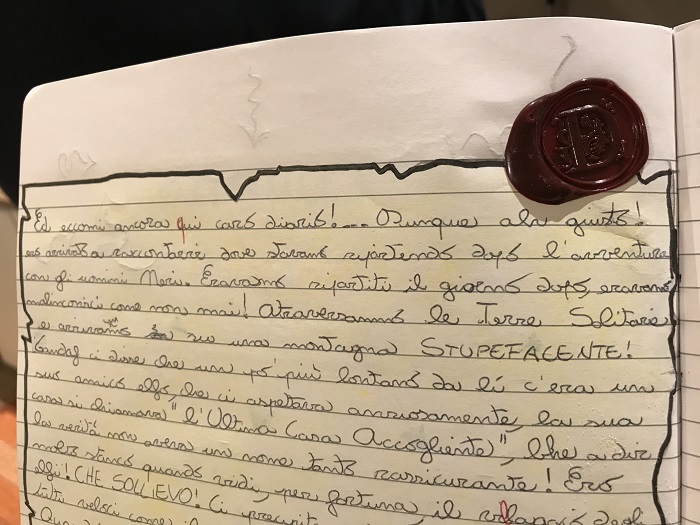 Ed eccomi ancora qui caro diario!... Dunque alor giusto!
ero arrivato a raccontare dove stavamo ripartendo dopo l'avventura
con gli uomini Neri. Eravamo ripartiti il giorno dopo, eravamo
malinconici come non mai! Atraversammo le Terre Solitarie
e arrivammo su una montagna STUPEFACENTE!
Gandalf ci disse che un po' più lontano da lì c'era un
suo amico elfo, che ci aspetava ansiosamente, la sua
casa si chiamava "l'Ultima Casa Accogliente", Che a dir
la verità non aveva un nome tanto rassicurante! Ero
molto stanco quando vidi, per fortuna, il villaggio degli
elfi! CHE SOLLIEVO! Ci
tutti veloci come il